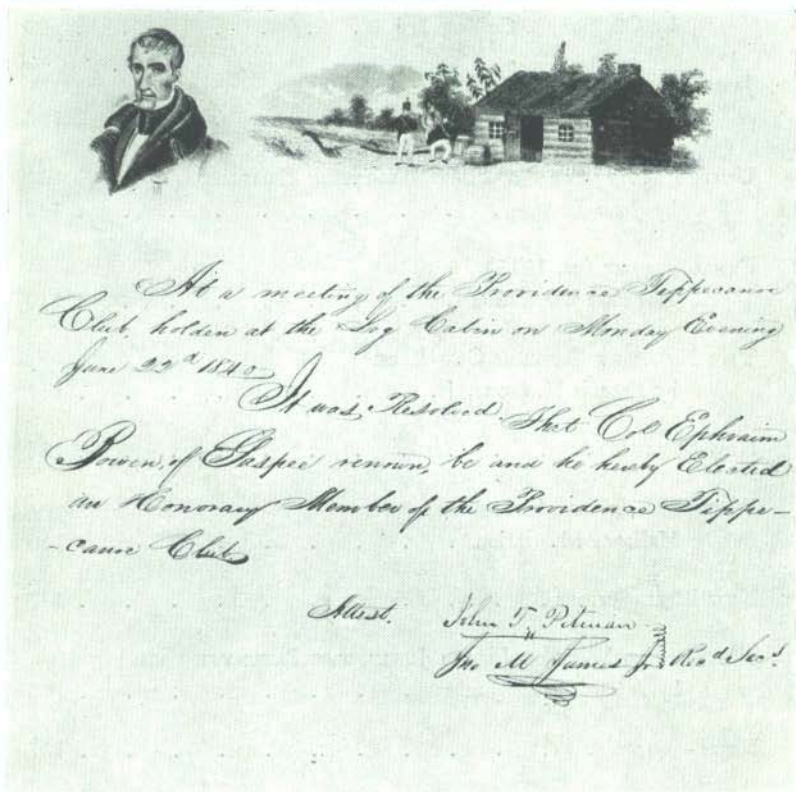 At a meeting of the Providence Tippecanoe
Club, holden at the Log Cabin on Monday Evening
June 22d 1840
It was, Resolved That Col Ephraim
Bowen, of Gaspee renown, be and he hereby Elected
an Honorary Member of the Providence Tippe-
-canoe Club
Attest. John T. Pitman
Jno M James Jr. Recd Secs.